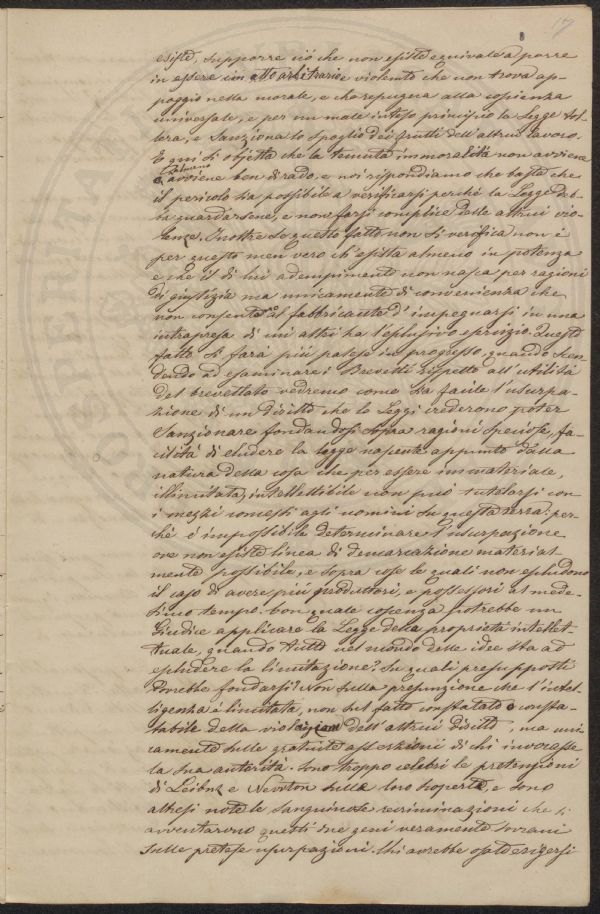 17
esiste, supporre ciò che non esiste equivale a porre
in essere un atto arbitrario e violento che non trova ap-
poggio nella morale, e che repugna alla coscienza
universale, e per un male inteso principio la Legge tol-
lera, e sanziona lo spoglio dei frutti dell'altrui lavoro.
E qui si objetta che la temuta immoralità non avviene
o almeno avviene ben di rado, e noi rispondiamo che basta che
il pericolo sia possibile a verificarsi perché la Legge deb-
ba guardarsene, e non farsi complice delle altrui vio-
lenze. Inoltre se questo fatto non si verifica non è
per questo men vero ch'esista almeno in potenza
e che il di lui adempimento non nasca per ragioni
di giustizia ma unicamente di convenienza che
non consente al fabbricante d'impegnarsi in una
intrapresa di cui altri ha l'esclusivo esercizio. Questo
fatto si farà più palese in progresso, quando scen-
dendo ad esaminare i Brevetti rispetto all'utilità
del brevettato vedremo come sia facile l'usurpa-
zione di un diritto che le Leggi crederono poter
sanzionare fondandosi sopra ragioni speciose, fa-
cilità di eludere la legge nascente appunto dalla
natura della cosa che per essere immateriale,
illimitata, intellettibile non può tutelarsi con
i mezzi concessi agli uomini su questa terra: per-
ché è impossibile determinare l'usurpazione
ove non esiste linea di demarcazione material
mente possibile, e sopra cose le quali non escludono
il caso di avere più produttori, e possessori al mede-
simo tempo. Con quale coscienza potrebbe un
Giudice applicare la Legge della proprietà intellet-
tuale, quando tutto nel mondo delle idee sta ad
escludere la limitazione? Su quali presupposti
dovrebbe fondarsi? Non sulla presunzione che l'intel-
ligenza è limitata, non sul fatto constatato o consta-
tabile della violazione dell'altrui diritto, ma uni-
camente sulle gratuite asserzioni di chi invocasse
la sua autorità. Sono troppo celebri le pretenzioni
di Leibnz e Newton sulla loro scoperta, e sono
altresì note le sanguinose recriminazioni che si
avventarono questi due geni veramente sovrani
sulle pretese usurpazioni. Chi avrebbe osato erigersi